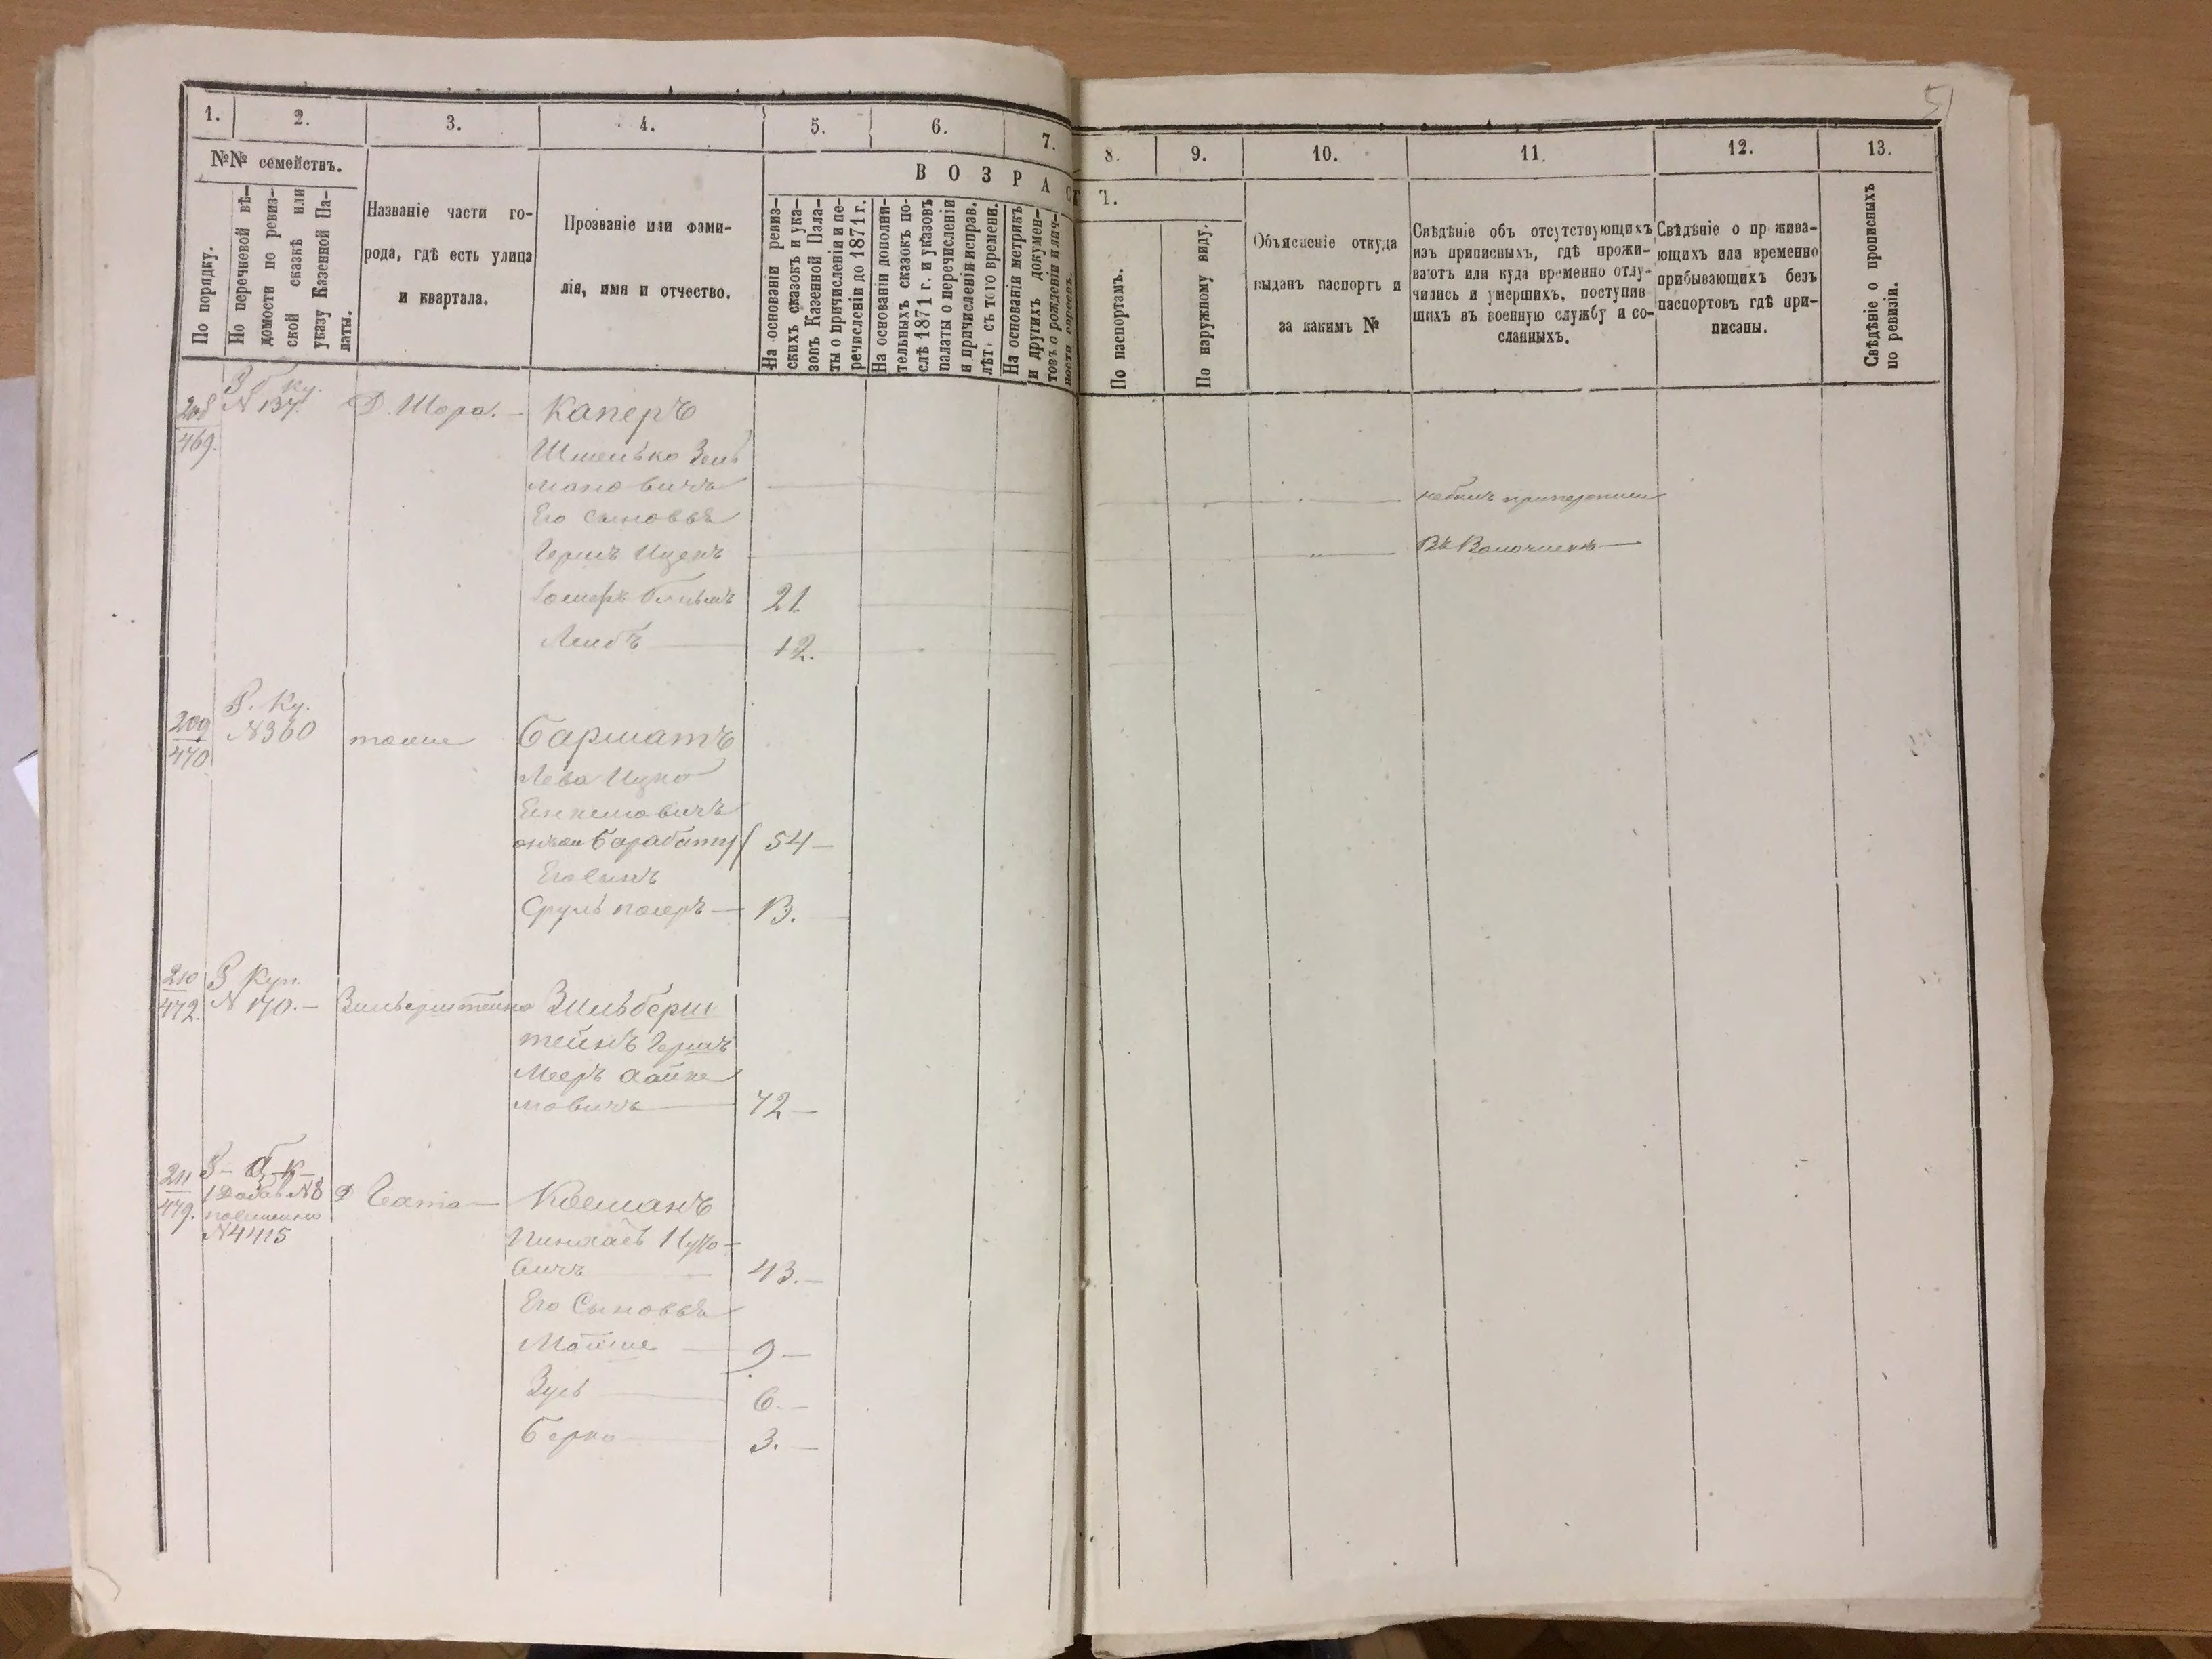 51
1. 2. 3. 4. 5. 6. 7. 8. 9. 10. 11. 12. 13.
№№ семействъ.
В О З Р А С Т.
По порядку.
По перечневой вѣ-
домости по ревиз-
ской сказкѣ или
указу Казенной Па-
латы.
Названіе части го-
рода, гдѣ есть улица
и квартала.
Прозваніе или фами-
лія, имя и отчество.
На основаніи ревиз-
скихъ сказокъ и ука-
зовъ Казенной Пала-
ты о причисленіи и пе-
речисленіи до 1871 г.
На основаніи дополни-
тельныхъ сказокъ по-
слѣ 1871 г. и указовъ
палаты о перечисленіи
и причисленіи исправ.
лѣтъ съ того времени.
На основаніи метрикъ
и другихъ докумен-
товъ о рожденіи и лич-
ности евреевъ.
По паспортамъ.
По наружному виду.
Объясненіе откуда
выданъ паспортъ и
за какимъ №
Свѣдѣніе объ отсутствующихъ
изъ приписныхъ, гдѣ прожи-
ваютъ или куда временно отлу-
чились и умершихъ, поступив
шихъ въ военную службу и со-
сланныхъ.
Свѣдѣніе о прожива-
ющихъ или временно
прибывающихъ безъ
паспортовъ гдѣ при-
писаны.
Свѣдѣніе о прописныхъ
по ревизіи.
208
469.
№ 137.
Д. Шора. — Каперъ
Шмелько Зель
мановичъ
Его сыновья
Гершъ Ицекъ
Въ Волочискѣ
21
Лейбъ — 12.
209
470
Р. Ку.
№ 360
тоже
Барматъ
Лейба Ицко
54 —
Его сынъ
Сруль — 13. —
210
472.
Куп.
№ 170. —
Зильберштейна
Зильберш
тейнъ Гершъ
Мееръ Хаимо
мовичъ — 72 —
211
479.
/ Добав №8
№ 4415
Косманъ
Пинхасъ Ицко
вичъ — 43. —
Его Сыновья
Мошке — 9 —
Зусь — 6. —
Берко — 3. —